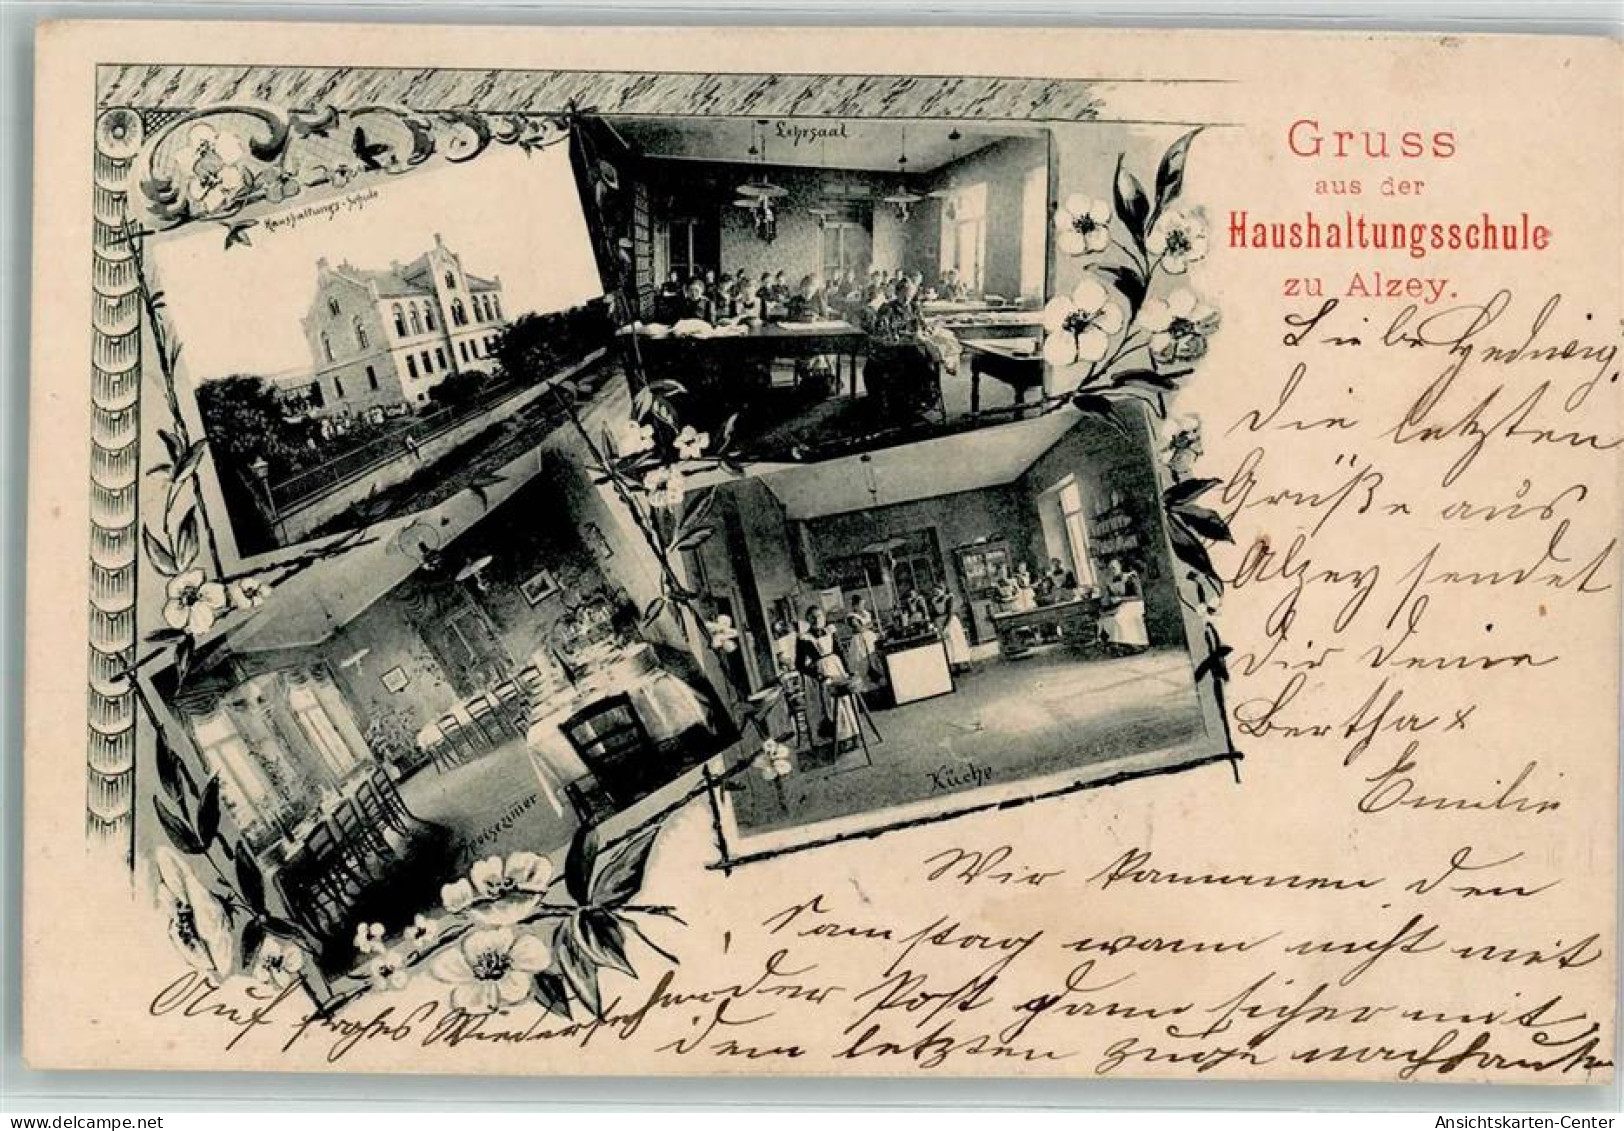 Haushaltungs-Schule
Lehrsaal
Speisezimmer
Küche
Gruss
aus der
Haushaltungsschule
zu Alzey.
Liebe Hedwig,
Die letzten
Grüße aus
Alzey sendet
Dir Deine
Bertha &
Emilie
Wir kommen den
Samstag wann nicht mit
der Post dann sicher mit
dem letzten Zuge nach
Auf frohes Wiedersehn
Ansichtskarten-Center